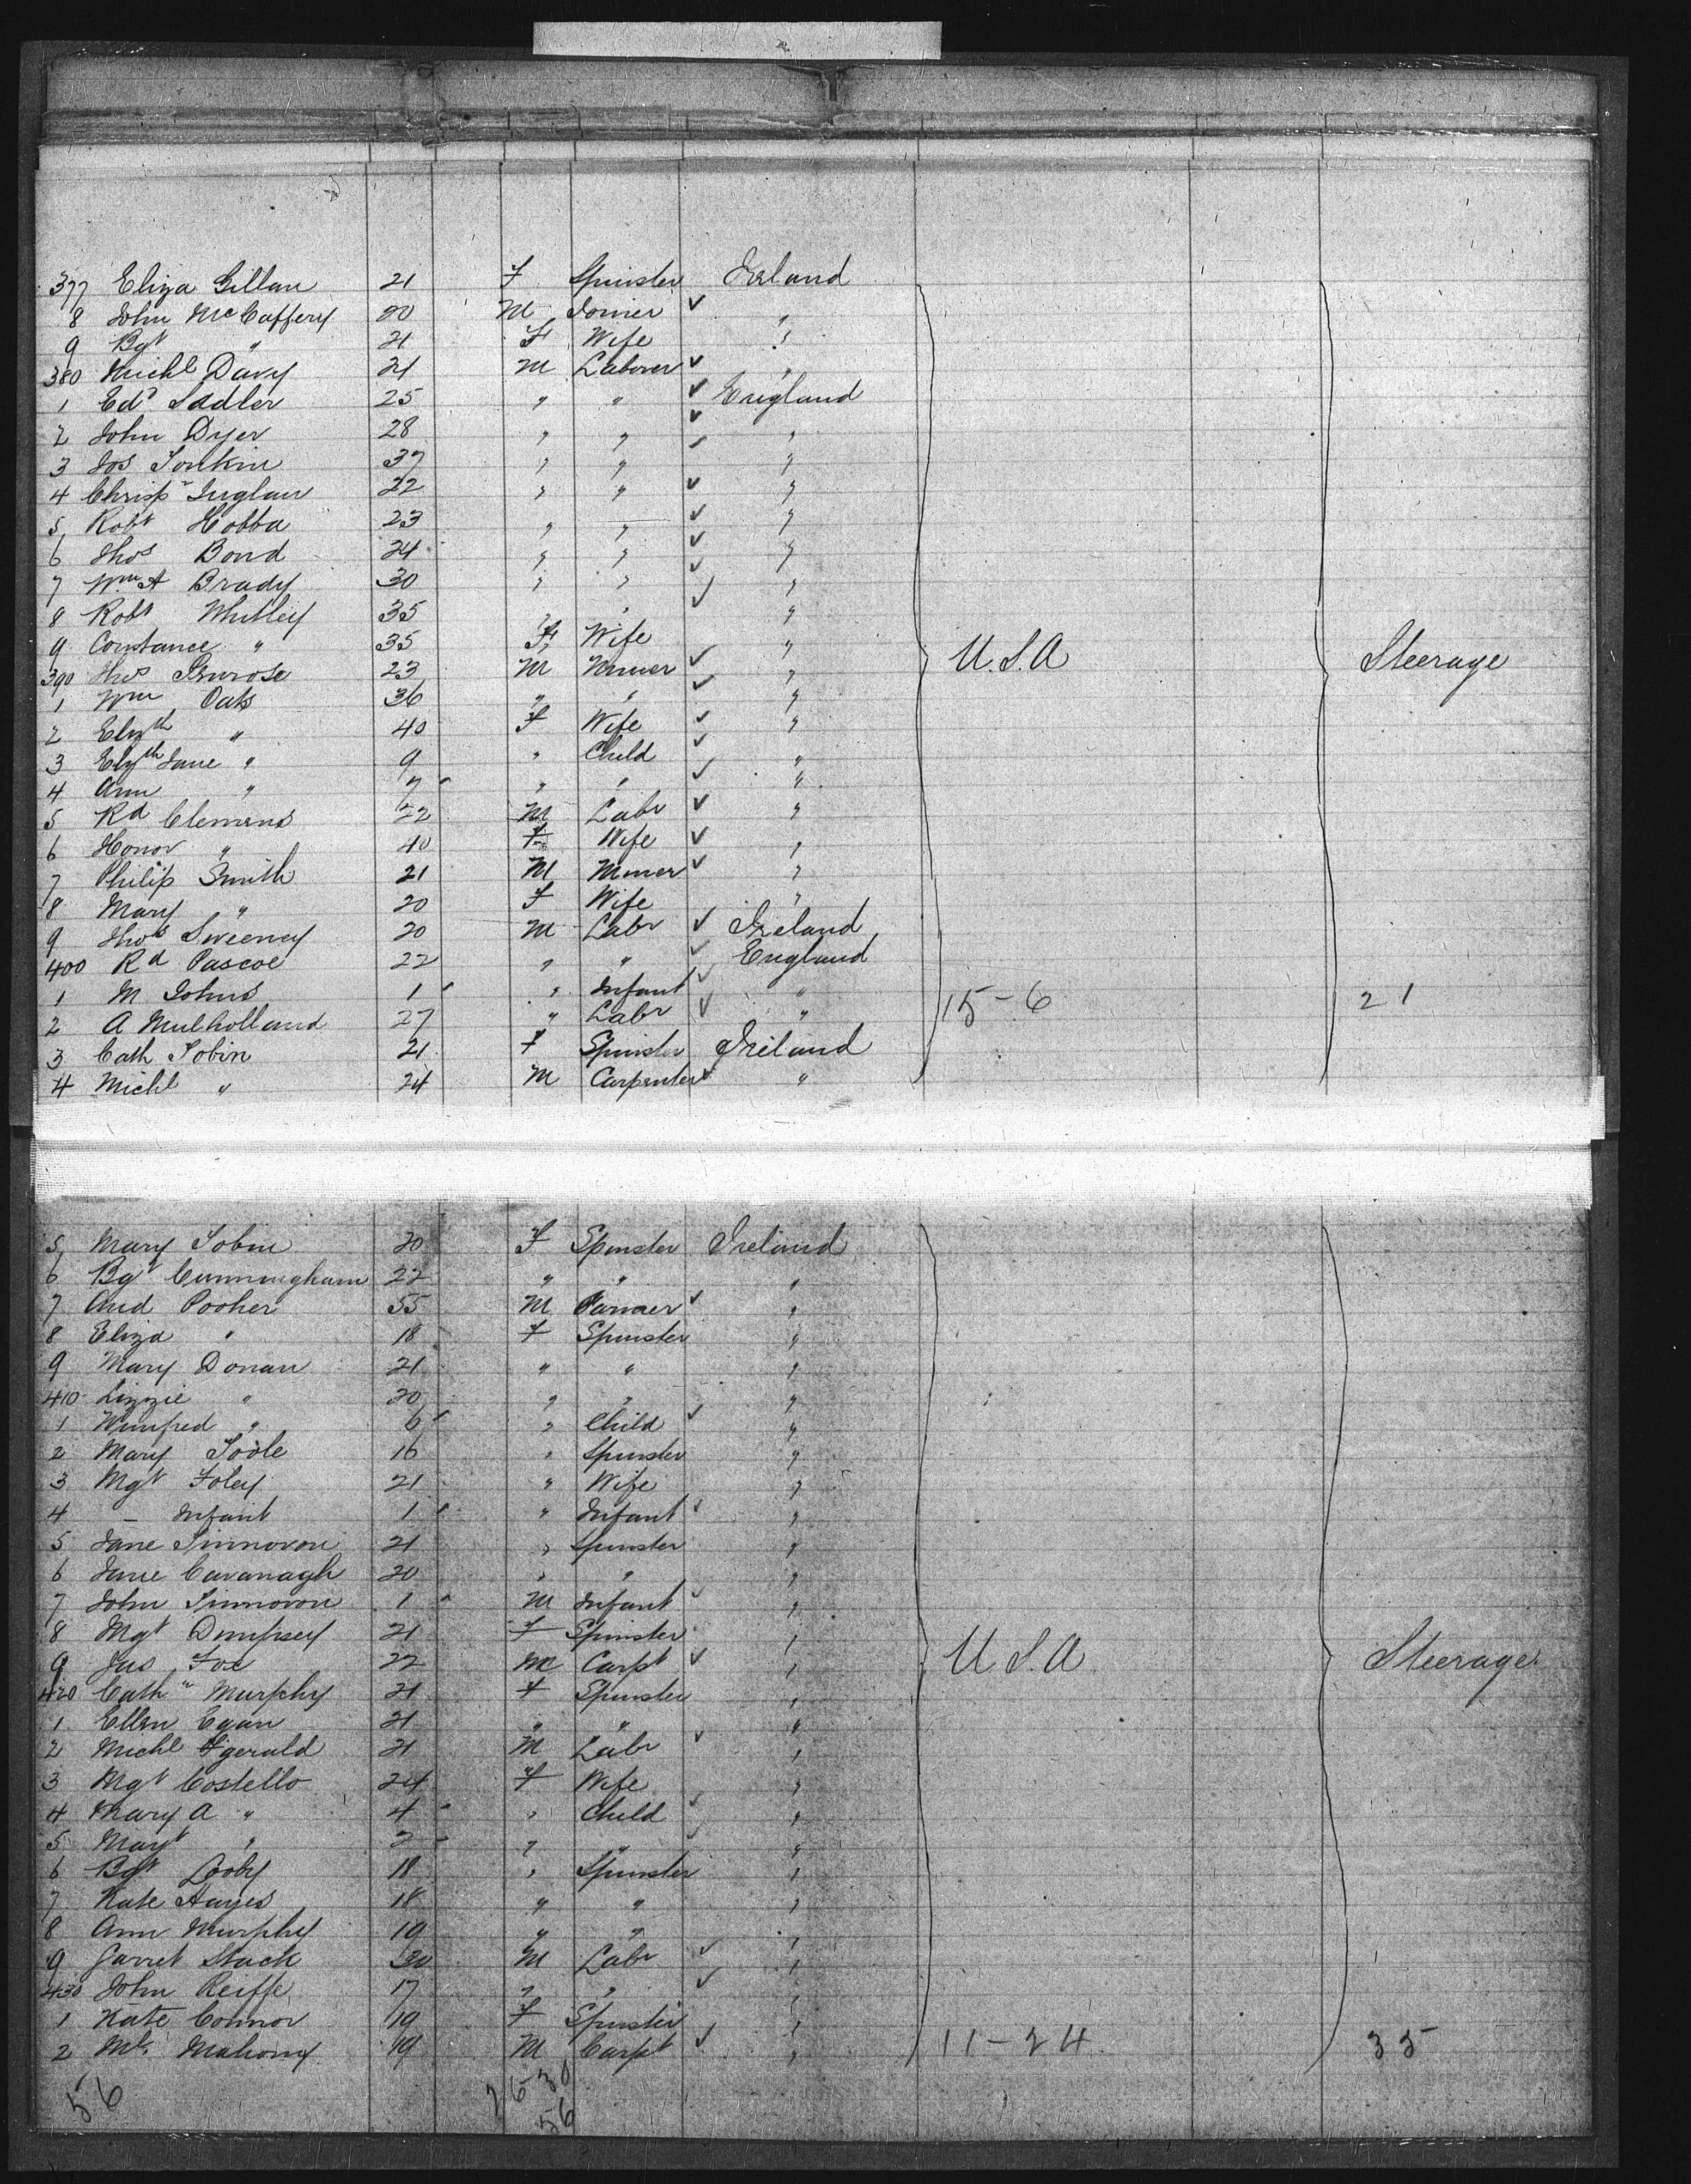 377 Eliza Gillan 21 F Spinster Ireland
8 John McCaffery 20 M Joiner "
9 Bgt " 21 F Wife "
380 Michl Davy 21 M Laborer "
1 Edd Sadler 25 " " England
2 John Dyer 28 " " "
3 Jos Tonkin 37 " " "
4 Chrisr Inglan 22 " " "
5 Robt Hobba 23 " " "
6 Thos Bond 24 " " "
7 Wm A Brady 30 " " "
8 Robt Whitley 35 " " "
9 Constance " 35 F Wife "
390 Thos Penrose 23 M Miner " U.S.A Steerage
1 Wm Oats 36 " " "
2 Elizth " 40 F Wife "
3 Elizth Jane " 9 " Child "
4 Ann " 7 " " "
5 Rd Clemens 22 M Labr "
6 Honor " 40 F Wife "
7 Philip Smith 21 M Miner "
8 Mary " 20 F Wife "
9 Thos Sweeney 20 M Labr Ireland
400 Rd Pascoe 22 " " England
1 M Johns 1 " Infant " 15-6 21
2 A Mulholland 27 " Labr "
3 Cath Tobin 21 F Spinster Ireland
4 Michl " 24 M Carpenter "
5 Mary Tobin 20 F Spinster Ireland
6 Bgt Cunningham 22 " " "
7 And Pooher 55 M Farmer "
8 Eliza " 18 F Spinster "
9 Mary Donan 21 " " "
410 Lizzie " 20 " " "
1 Winifred " 6 " Child "
2 Mary Toole 16 " Spinster "
3 Mgt Foley 21 " Wife "
4 - Infant 1 " Infant "
5 Jane Sinnovon 21 " Spinster "
6 Jane Cavanagh 20 " " "
7 John Sinnovon 1 M Infant "
8 Mgt Dempsey 21 F Spinster "
9 Jas Fox 22 M Carpt " U.S.A Steerage
420 Cath Murphy 21 F Spinster "
1 Ellen Egan 21 " " "
2 Michl Fgerald 21 M Labr "
3 Mgt Costello 24 F Wife "
4 Mary A " 4 " Child "
5 Magt " 2 " " "
6 Bgt Looby 18 " Spinster "
7 Kate Hayes 18 " " "
8 Ann Murphy 19 " " "
9 Garret Stack 30 M Labr "
430 John Keiffe 17 " " "
1 Kate Connor 19 F Spinster "
2 Ml. Mahony 19 M Carpt " 11-24 35
56 26-30
56